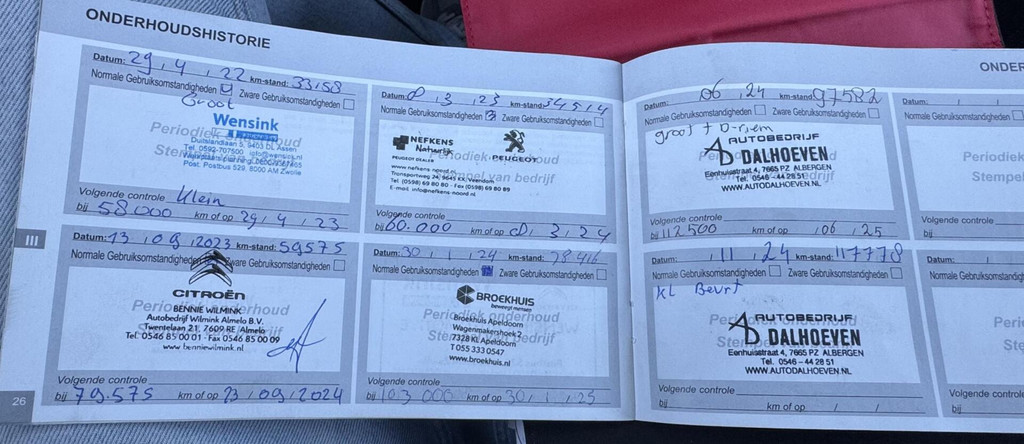 ONDERHOUDSHISTORIE
Datum: 29 , 4 , 22 km-stand: 33158
Normale Gebruiksomstandigheden Zware Gebruiksomstandigheden
Groot
Wensink
Periodiek onderhoud
Duitslandlaan 5, 9403 DL Assen
Tel. 0592-707500
Post. Postbus 529, 8000 AM Zwolle
Volgende controle Klein
bij 58000 km of op 29 , 4 , 23
Datum: 8 , 3 , 23 km-stand: 34514
Normale Gebruiksomstandigheden Zware Gebruiksomstandigheden
NEFKENS
Natuurlijk
PEUGEOT DEALER
PEUGEOT
Periodiek onderhoud
Stempel van bedrijf
www.nefkens-noord.nl
Transportweg 24, 9645 KX, Veendam
Tel (0598) 69 80 80 - Fax (0598) 69 80 89
E-mail: info@nefkens-noord.nl
Volgende controle
bij 60.000 km of op 8 , 3 , 24
Datum: 13 , 09 , 2023 km-stand: 59575
Normale Gebruiksomstandigheden Zware Gebruiksomstandigheden
CITROËN
Periodiek onderhoud
BENNIE WILMINK
Autobedrijf Wilmink Almelo B.V.
Twentelaan 21, 7609 RE Almelo
Tel: 0546 85 00 01 - Fax 0546 85 00 09
www.benniewilmink.nl
Volgende controle
bij 79.575 km of op 13 / 09 / 2024
Datum: 30 , 1 , 24 km-stand: 78416
Normale Gebruiksomstandigheden Zware Gebruiksomstandigheden
BROEKHUIS
beweegt mensen
Periodiek onderhoud
Stempel van bedrijf
Broekhuis Apeldoorn
Wagenmakershoek 2
7328 KL Apeldoorn
T 055 333 0547
www.broekhuis.nl
Volgende controle
bij 103 000 km of op 30 , 1 , 25
III
26
ONDER
Datum: 06 , 24 km-stand: 97582
Normale Gebruiksomstandigheden Zware Gebruiksomstandigheden
groot + D-riem
AUTOBEDRIJF
AD DALHOEVEN
Eenhuisstraat 4, 7665 PZ ALBERGEN
Tel. 0546 - 44 28 51
WWW.AUTODALHOEVEN.NL
Volgende controle
bij 112500 km of op / 06 / 25
Datum: , 11 , 24 km-stand: 117778
Normale Gebruiksomstandigheden Zware Gebruiksomstandigheden
KL Beurt
Periodiek onderhoud
AUTOBEDRIJF
AD DALHOEVEN
Eenhuisstraat 4, 7665 PZ ALBERGEN
Tel. 0546 - 44 28 51
WWW.AUTODALHOEVEN.NL
Volgende controle
bij km of op / /
Datum: / /
Normale Gebruiksomstandigheden
Periodiek
Stempel
Volgende controle
bij
Datum: / /
Normale Gebruiksomstandigheden
Periodiek
Stempel
Volgende controle
bij